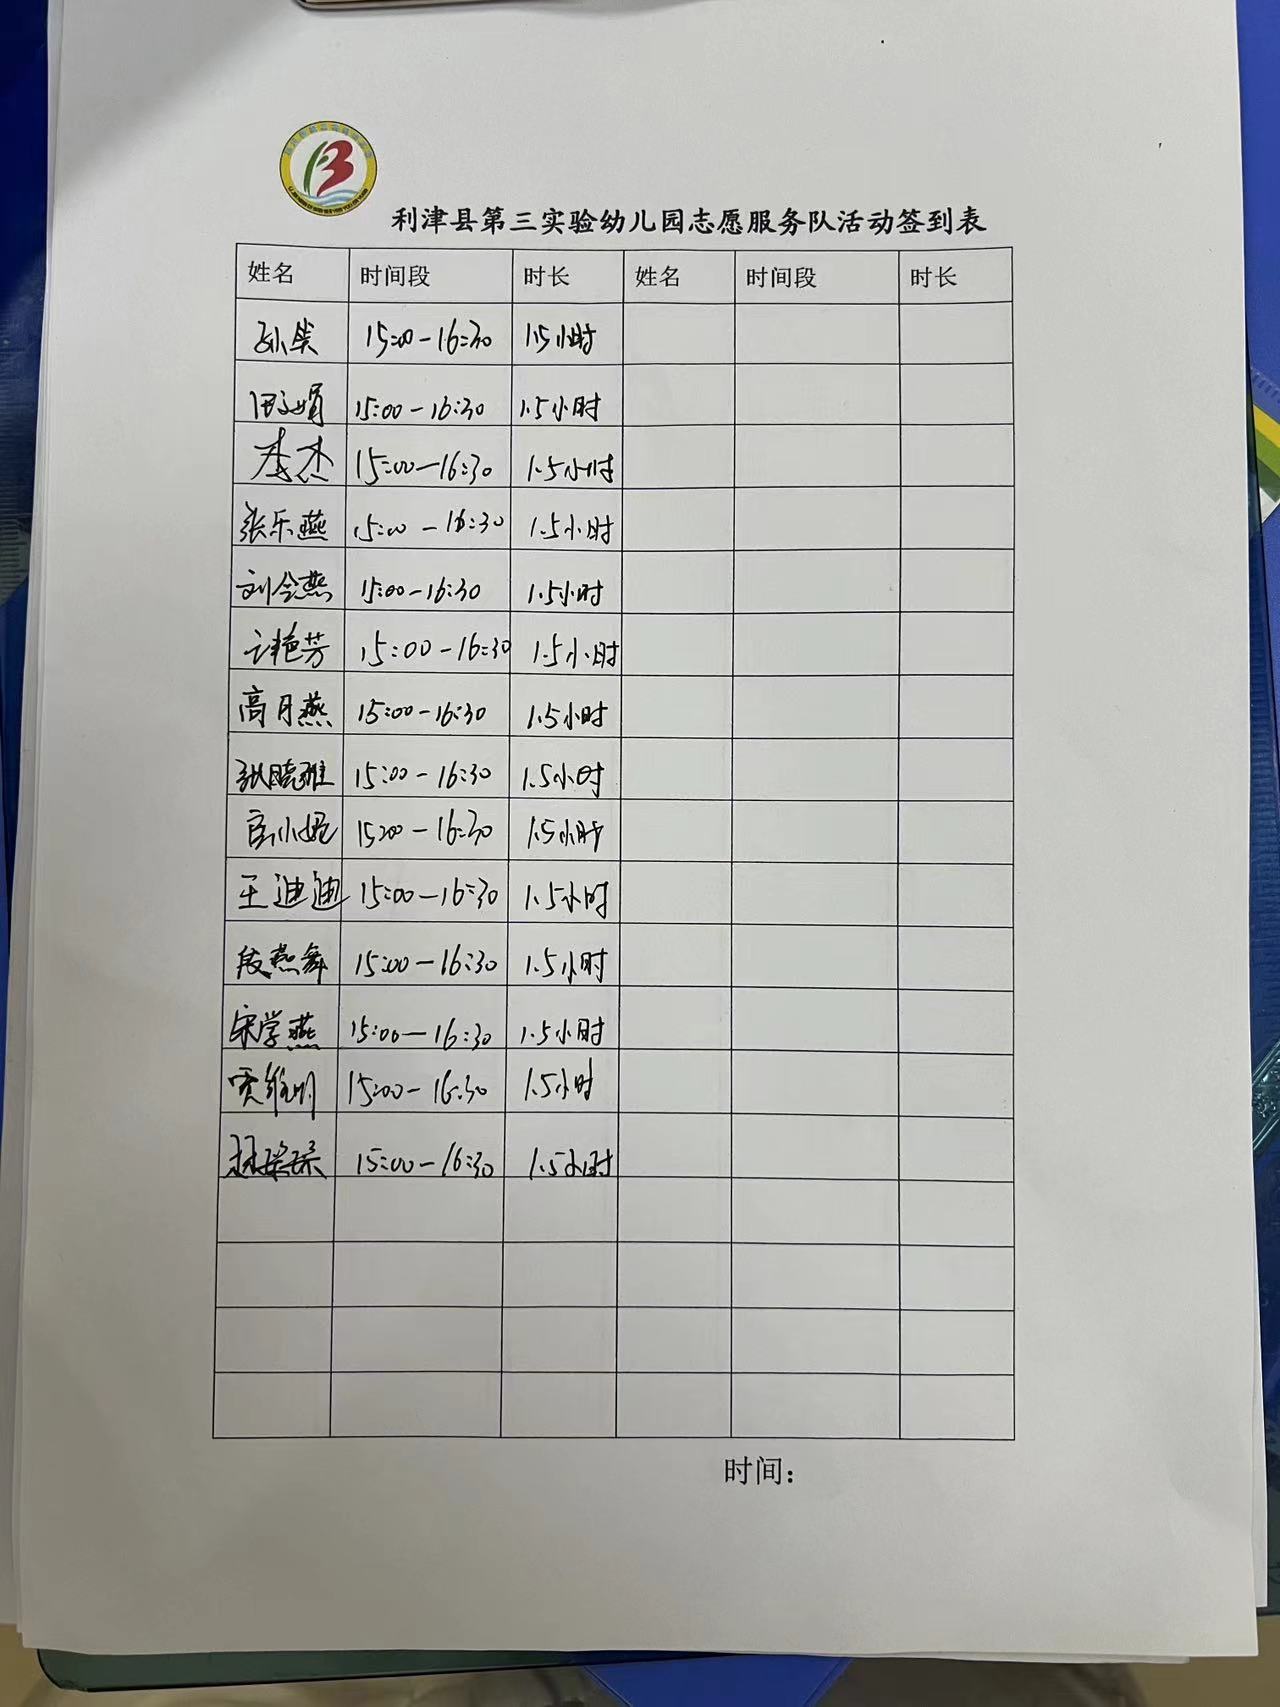 利津县第三实验幼儿园志愿服务队活动签到表
姓名 时间段 时长 姓名 时间段 时长
15:00-16:30 1.5小时
15:00-16:30 1.5小时
李杰 15:00-16:30 1.5小时
张乐燕 15:00-16:30 1.5小时
刘令燕 15:00-16:30 1.5小时
艳芳 15:00-16:30 1.5小时
高月燕 15:00-16:30 1.5小时
张晓雅 15:00-16:30 1.5小时
小妮 15:00-16:30 1.5小时
王迪迪 15:00-16:30 1.5小时
段燕舞 15:00-16:30 1.5小时
宋学燕 15:00-16:30 1.5小时
贾维明 15:00-16:30 1.5小时
15:00-16:30 1.5小时
时间：